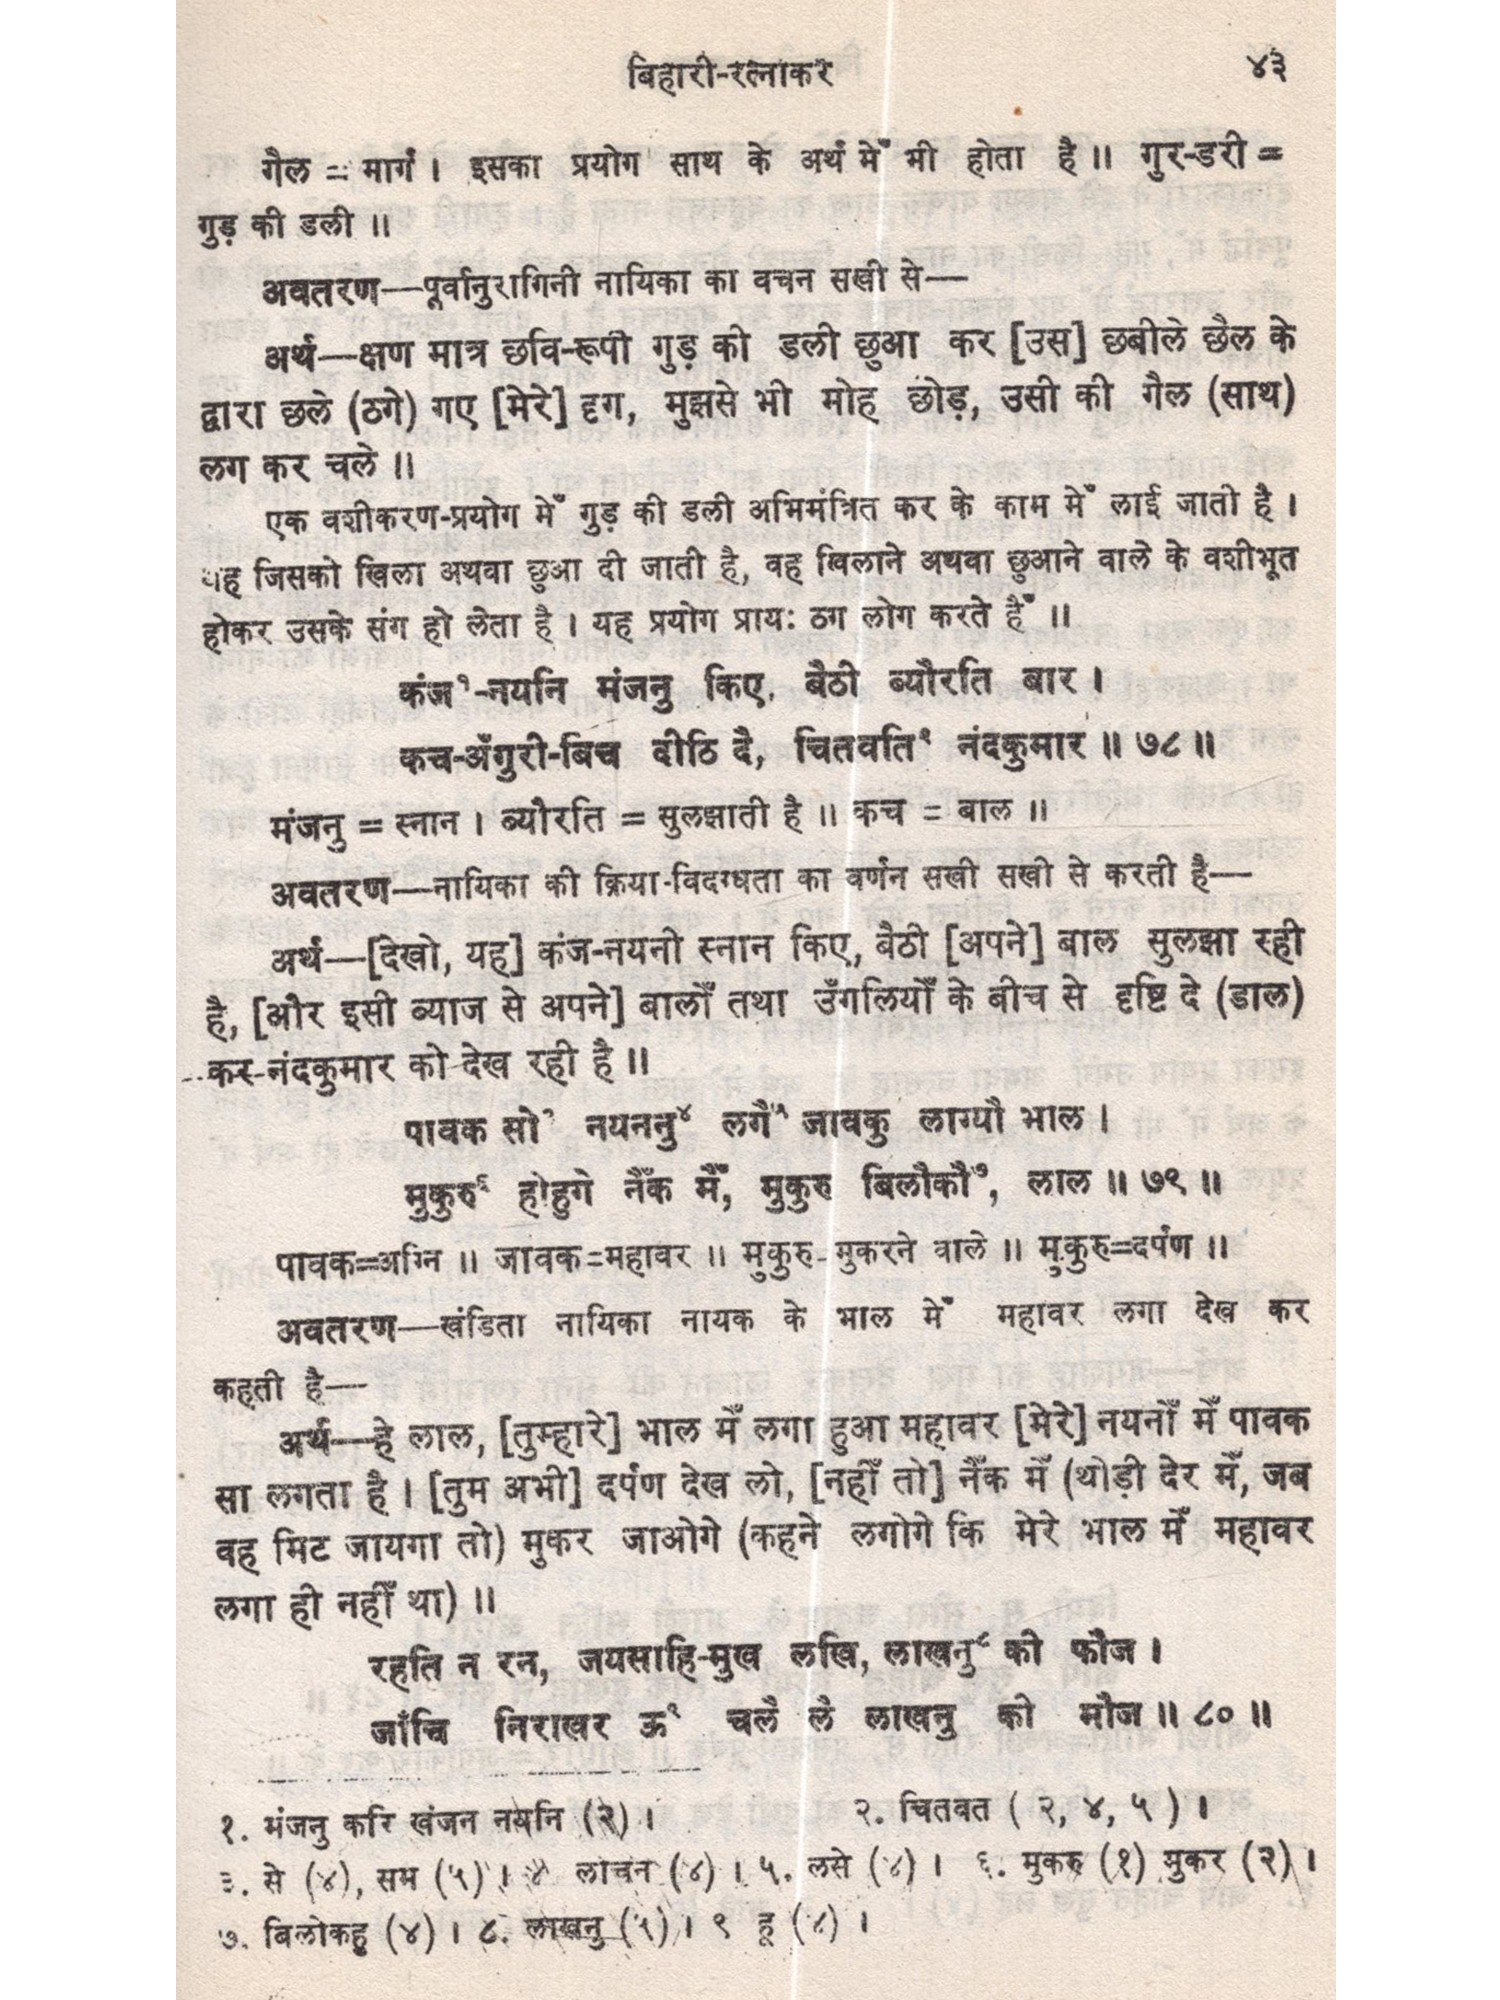 बिहारी-रत्नाकर
४३
गैल = मार्ग । इसका प्रयोग साथ के अर्थ मेँ भी होता है ॥ गुर-डरी =
गुड़ की डली ॥
अवतरण—पूर्वानुरागिनी नायिका का वचन सखी से—
अर्थ—क्षण मात्र छवि-रूपी गुड़ की डली छुआ कर [उस] छबीले छैल के
द्वारा छले (ठगे) गए [मेरे] दृग, मुझसे भी मोह छोड़, उसी की गैल (साथ)
लग कर चले ॥
एक वशीकरण-प्रयोग मेँ गुड़ की डली अभिमंत्रित कर के काम मेँ लाई जाती है ।
यह जिसको खिला अथवा छुआ दी जाती है, वह खिलाने अथवा छुआने वाले के वशीभूत
होकर उसके संग हो लेता है । यह प्रयोग प्रायः ठग लोग करते हैँ ॥
कंज¹-नयनि मंजनु किए, बैठी ब्यौरति बार ।
कच-अँगुरी-बिच दीठि दै, चितवति² नंदकुमार ॥ ७८ ॥
मंजनु = स्नान । ब्यौरति = सुलझाती है ॥ कच = बाल ॥
अवतरण—नायिका की क्रिया-विदग्धता का वर्णन सखी सखी से करती है—
अर्थ—[देखो, यह] कंज-नयनी स्नान किए, बैठी [अपने] बाल सुलझा रही
है, [और इसी व्याज से अपने] बालोँ तथा उँगलियोँ के बीच से दृष्टि दे (डाल)
कर नंदकुमार को देख रही है ॥
पावक सो³ नयननु⁴ लगै⁵ जावकु लाग्यौ भाल ।
मुकुरु⁶ होहुगे नैँक मैँ, मुकुरु बिलौकौ⁷, लाल ॥ ७९ ॥
पावक=अग्नि ॥ जावक=महावर ॥ मुकुरु=मुकरने वाले ॥ मुकुरु=दर्पण ॥
अवतरण—खंडिता नायिका नायक के भाल मेँ महावर लगा देख कर
कहती है—
अर्थ—हे लाल, [तुम्हारे] भाल मेँ लगा हुआ महावर [मेरे] नयनोँ मेँ पावक
सा लगता है । [तुम अभी] दर्पण देख लो, [नहीँ तो] नैँक मेँ (थोड़ी देर मेँ, जब
वह मिट जायगा तो) मुकर जाओगे (कहने लगोगे कि मेरे भाल मेँ महावर
लगा ही नहीँ था) ॥
रहति न रन, जयसाहि-मुख लखि, लाखनु⁸ की फौज ।
जाँचि निराखर ऊ⁹ चलै लै लाखनु की मौज ॥ ८० ॥
१. मंजनु करि खंजन नयनि (२) । २. चितवत ( २, ४, ५ ) ।
३. से (४), सम (५) । ४ लाचन (४) । ५. लसे (४) । ६. मुकरु (१) मुकर (२) ।
७. बिलोकहु (४) । ८. लाखनु (५) । ९ हू (४) ।